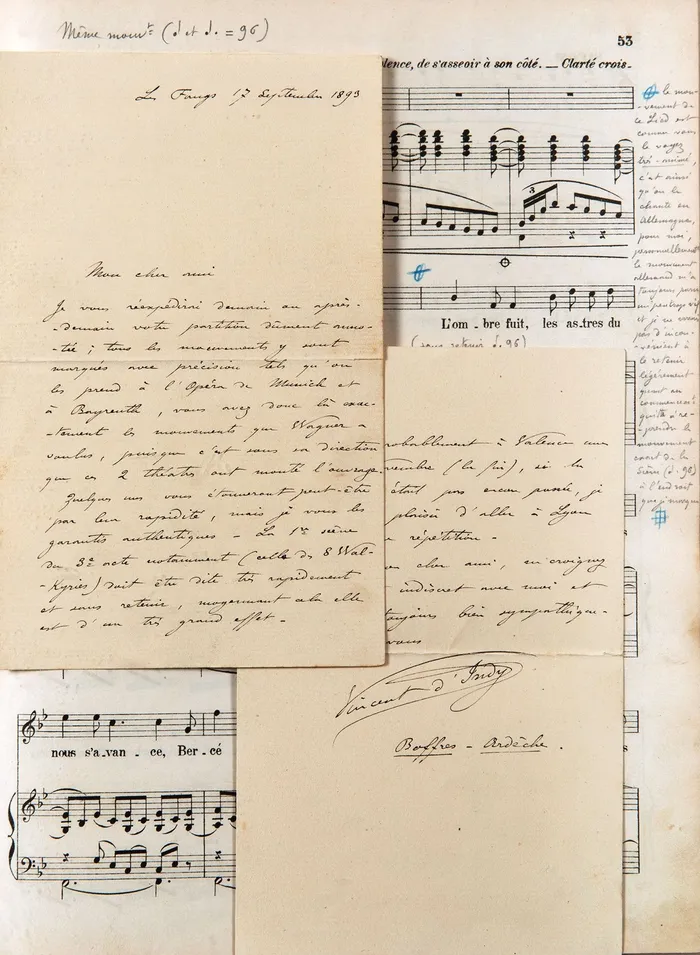 Même mouvt (♩ et ♩. = 96)
53
lence, de s'asseoir à son côté. — Clarté crois-
Les Faugs 17 Septembre 1893
Mon cher ami
Je vous réexpédierai demain ou après-
-demain votre partition dûment anno-
-tée ; tous les mouvements y sont
marqués avec précision tels qu'on
les prend à l'Opéra de Munich et
à Bayreuth, vous avez donc là exac-
-tement les mouvements que Wagner a
voulus, puisque c'est sous sa direction
que ces 2 théâtres ont monté l'ouvrage.
Quelques uns vous étonneront peut-être
par leur rapidité, mais je vous les
garantis authentiques - La 1re scène
du 3e acte notamment (celle des 8 Wal-
-kyries) doit être dite très rapidement
et sans retenir, moyennant cela elle
est d'un très grand effet -
le mou-
-vement de
ce Lied est
comme vous
le voyez
très-animé,
c'est ainsi
qu'on le
chante en
Allemagne,
pour moi,
personnellement
le mouvement
allemand m'a
toujours paru
un peu trop vif
et je ne verrais
pas d'incon-
-vénient à
le retenir
légèrement
quant au
commencement
quitte à re-
-prendre le
mouvement
exact de la
scène (♩. 96)
à l'endroit
que je marque
3
L'om - bre fuit, les as-tres du
(sans retenir ♩. 96)
robablement à Valence une
vembre (la fin), si la
était pas encore passée, je
plaisir d'aller à Lyon
répétition -
cher ami, en croignez
indiscret avec moi et
toujours bien sympathique-
vous
Vincent d'Indy
Boffres - Ardèche.
nous s'a-van - ce, Ber-cé